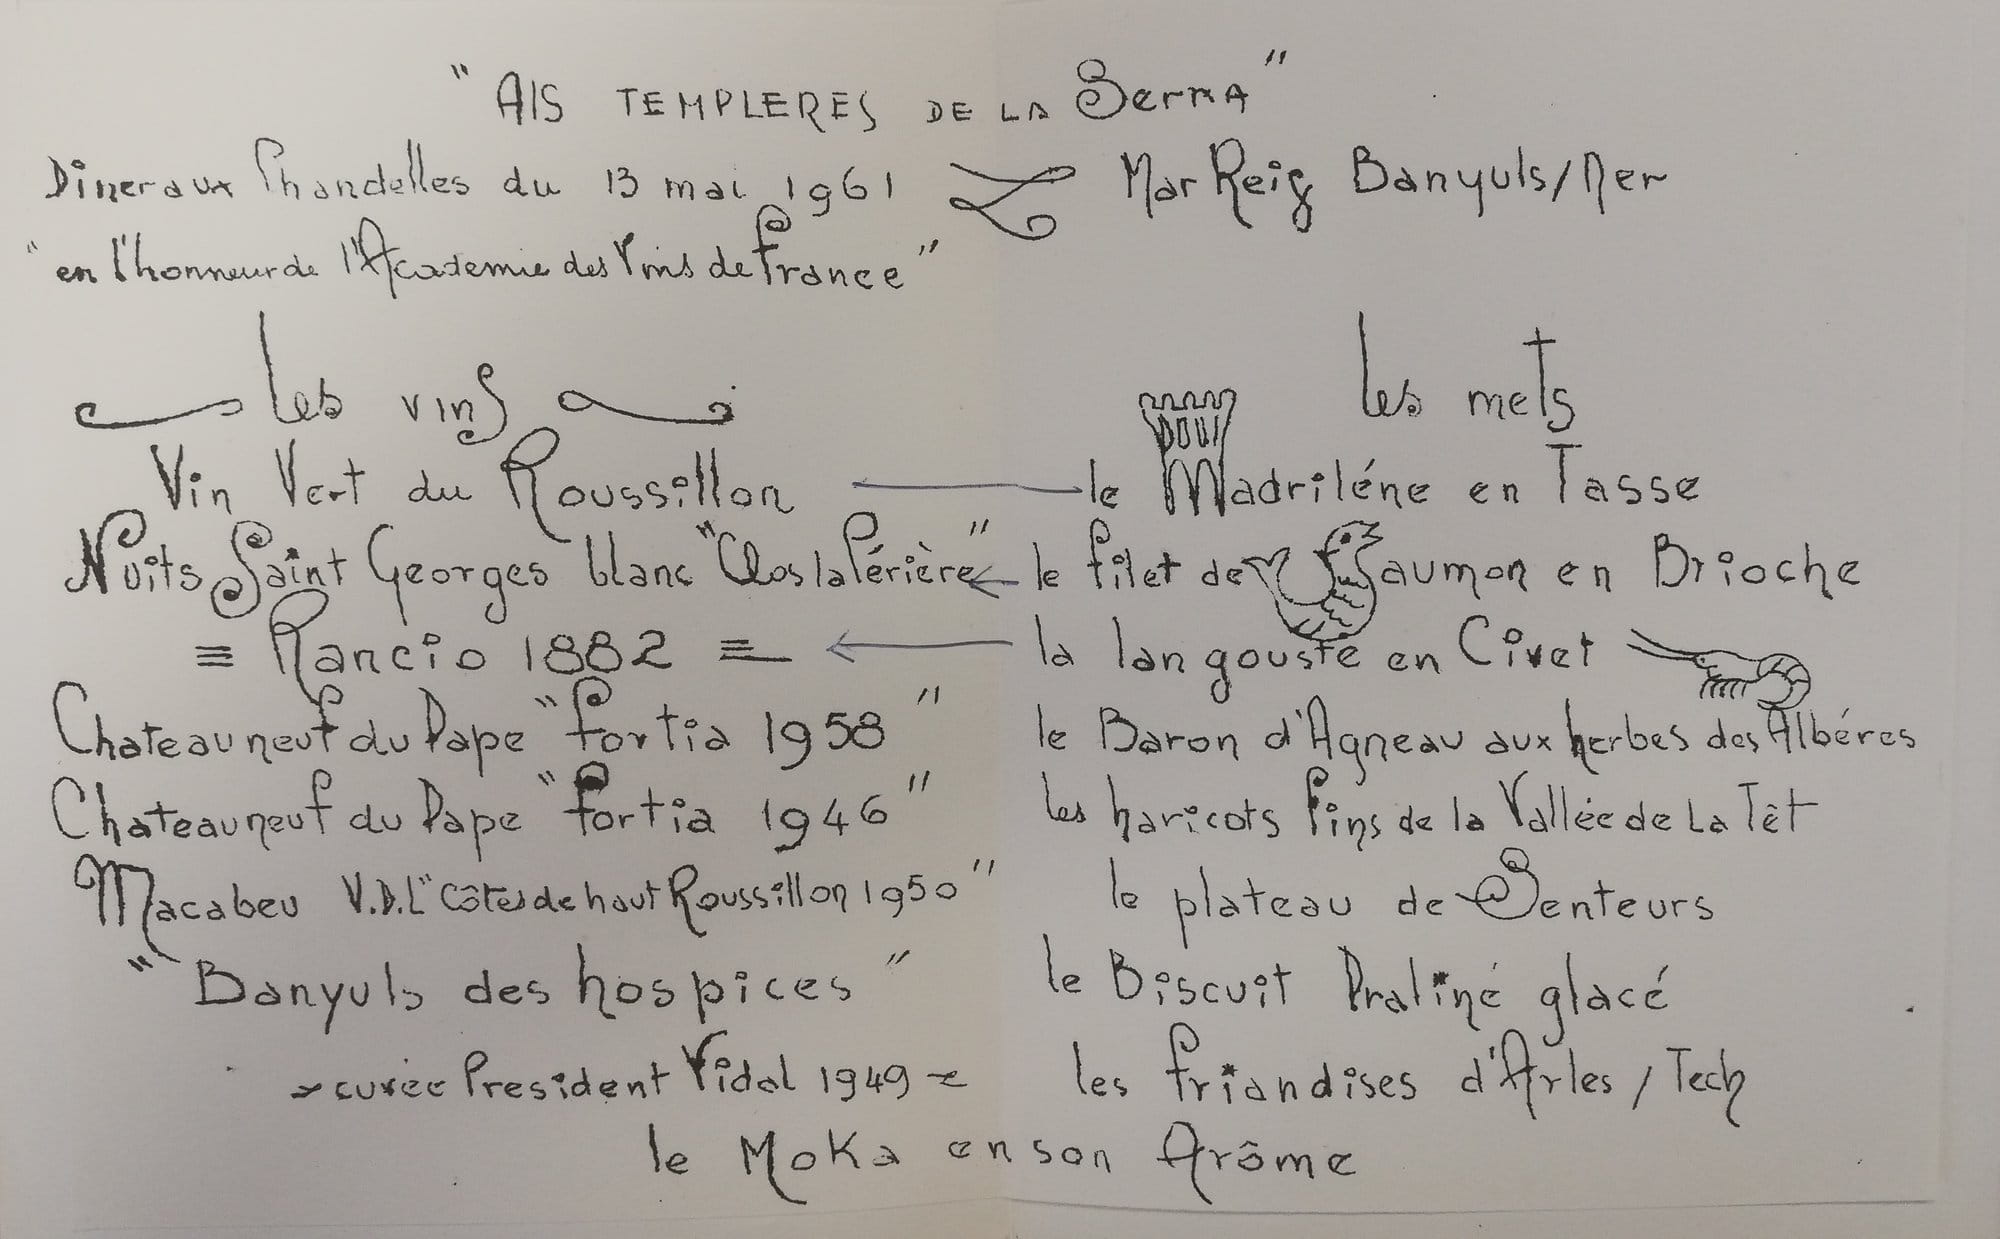 " AlS TEMPLERES DE LA SerrA "
Diner aux Chandelles du 13 mai 1961
Mar Reig Banyuls/Mer
"en l'honneur de l'Academie des Vins de France"
les vins
les mets
Vin Vert du Roussillon
le Madriléne en Tasse
Nuits Saint Georges blanc "Clos la Périère"
le filet de Saumon en Brioche
Rancio 1882
la langouste en Civet
Chateauneuf du Pape "fortia 1958"
le Baron d'Agneau aux herbes des Albéres
Chateauneuf du Pape "fortia 1946"
les haricots fins de la Vallée de La Têt
Macabeu V.D.L "Côtes de haut Roussillon 1950"
le plateau de Senteurs
"Banyuls des hospices"
le Biscuit Praliné glacé
cuvée President Vidal 1949
les friandises d'Arles / Tech
le Moka en son Arôme